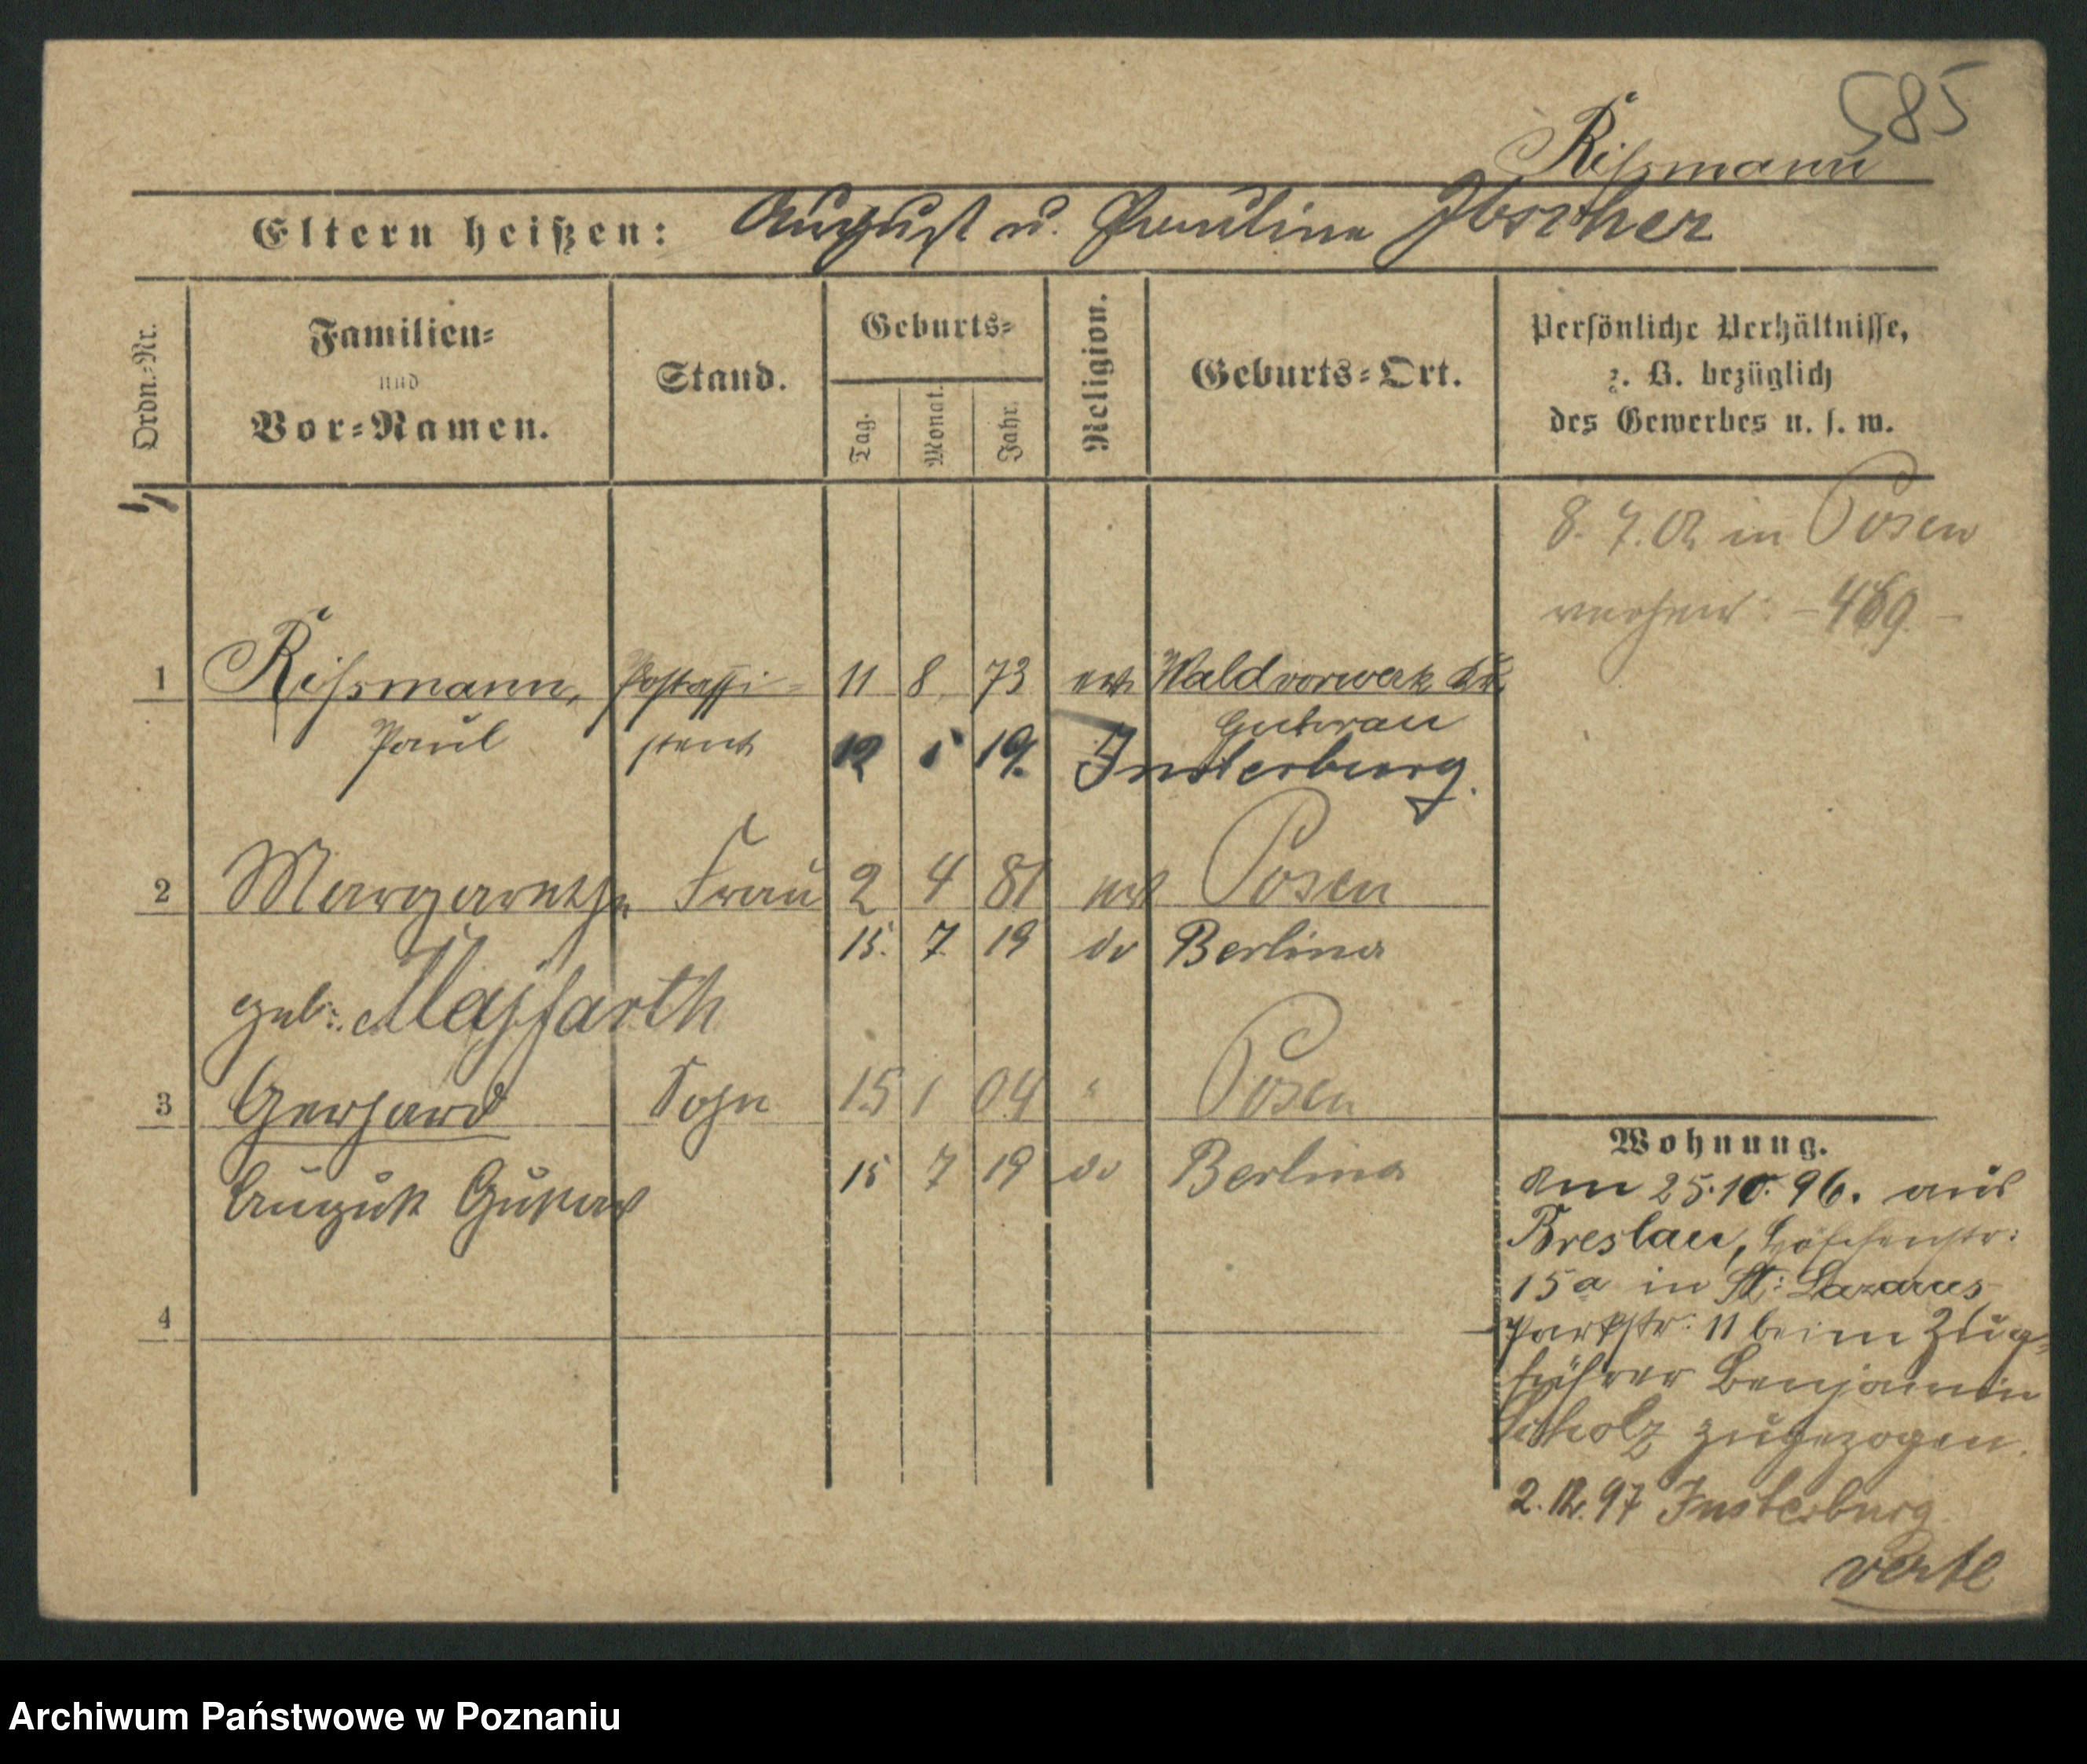 585
Rißmann
Eltern heißen: August u. Pauline Ibscher
Ordn.-Nr.
Familien-
und
Vor-Namen.
Stand.
Geburts-
Tag.
Monat.
Jahr.
Religion.
Geburts-Ort.
Persönliche Verhältnisse,
z. B. bezüglich
des Gewerbes u. s. w.
8. 7. 02 in Posen
- 489 -
1 Rißmann, Postassi- 11 8 73 ev. Waldvorwerk Kr.
Paul stent Guhrau
12 1 19. Insterburg.
2 Margarethe Frau 2 4 81 ev Posen
15. 7. 19 do Berlin
geb:. Mayfarth
3 Gerhard Sohn 15 1 04 " Posen
15 7 19 do Berlin
August Gustav
4
Wohnung.
Am 25.10.96. aus
Breslau, Höfchenstr:
15a in St: Lazarus
Parkstr: 11 beim Zug-
führer Benjamin
Scholz zugezogen.
2. 12. 97 Insterburg
verte
Archiwum Państwowe w Poznaniu